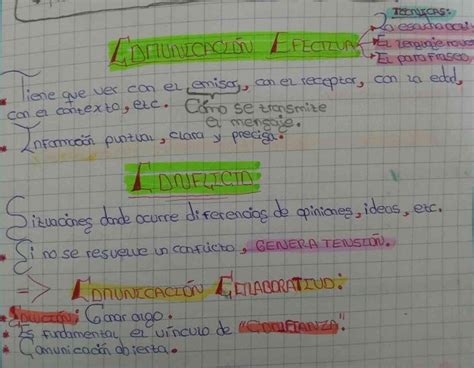 TECNICAS:
COMUNICACIÓN EFECTIVA
La escucha
El lenguaje
El parafraseo
Tiene que ver con el emisor, con el receptor, con la edad,
con el contexto, etc.
Cómo se transmite
el mensaje.
Información puntual, clara y precisa.
CONFLICTO
Situaciones donde ocurre diferencias de opiniones, ideas, etc.
Si no se resuelve un conflicto, GENERA TENSIÓN.
=> COMUNICACIÓN COLABORATIVO:
Solución: Ganar algo.
Es fundamental el vínculo de "CONFIANZA".
Comunicación abierta.